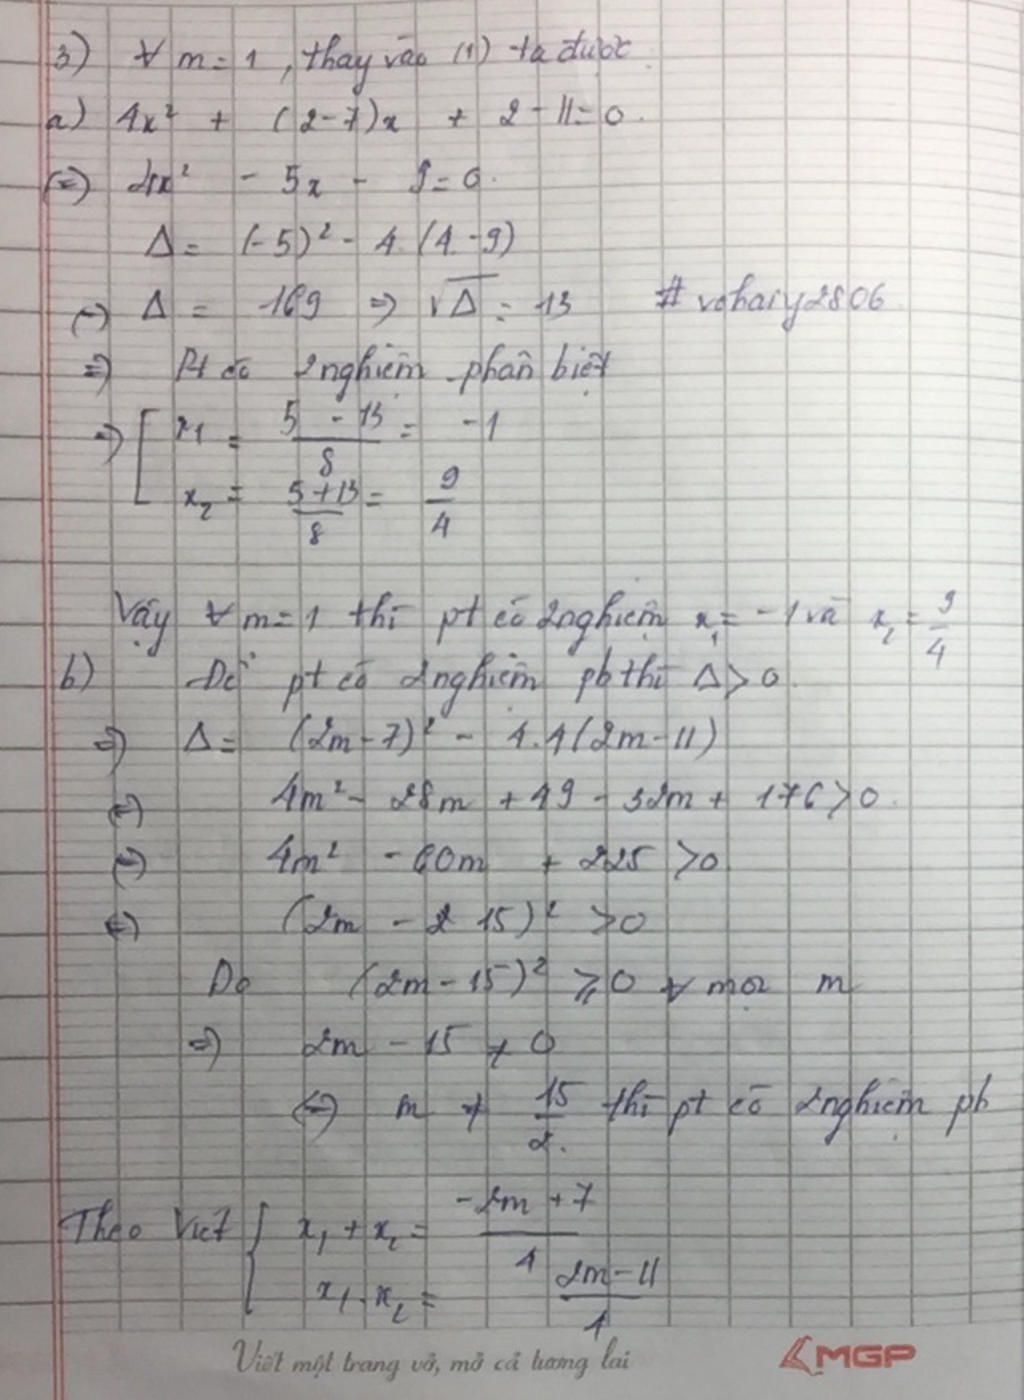 3) ∀ m = 1, thay vào (1) ta được
a) 4x² + (2-7)x + 2 - 11 = 0.
(=) 4x² - 5x - 9 = 0.
Δ = (-5)² - 4.(4.-9)
(=) Δ = 169 => √Δ = 13 # vohaiy2806
=> Pt có 2 nghiệm phân biệt
=> [ x₁ = (5 - 13)/8 = -1
x₂ = (5 + 13)/8 = 9/4
Vậy ∀ m = 1 thì pt có 2 nghiệm x₁ = -1 và x₂ = 9/4
b) Để pt có 2 nghiệm pb thì Δ > 0.
=> Δ = (2m - 7)² - 4.4(2m - 11)
(=) 4m² - 28m + 49 - 32m + 176 > 0.
(=) 4m² - 60m + 225 > 0
(=) (2m - 15)² > 0
Do (2m - 15)² ≥ 0 ∀ mọi m
=> 2m - 15 ≠ 0
(=) m ≠ 15/2. thì pt có 2 nghiệm pb
Theo Viét { x₁ + x₂ = (-2m + 7)/4
x₁.x₂ = (2m - 11)/4
Viết một trang vở, mở cả tương lai MGP